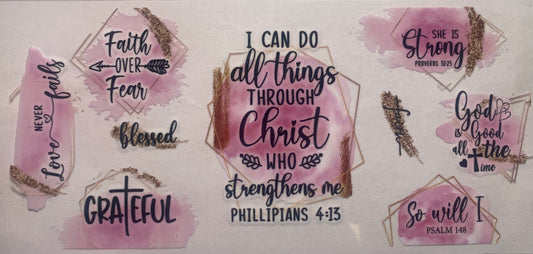 Faith
OVER
Fear
Love NEVER fails
blessed
GRATEFUL
I CAN DO
all things
THROUGH
Christ
WHO
strengthens me
PHILLIPIANS 4:13
SHE IS
Strong
PROVERBS 31:25
God
is Good
all the
time
So will I
PSALM 148